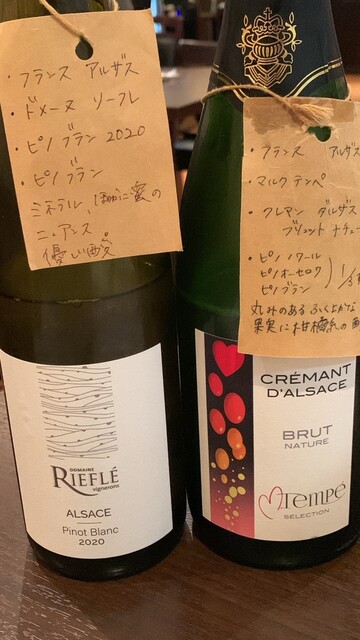 ・フランス アルザス
・ドメーヌ リーフレ
・ピノ ブラン 2020
・ピノ ブラン
ミネラル、ほのかに蜜の
ニュアンス
優しい酸
DOMAINE
RIEFLÉ
vignerons
ALSACE
Pinot Blanc
2020
・フランス アルザス
・マルク テンペ
・クレマン ダルザス
ブリュット ナチュー
・ピノ ノワール
ピノ オーセロワ
ピノ ブラン
1/3
丸みのある ふくよかな
果実に柑橘系の酸
CRÉMANT
D'ALSACE
BRUT
NATURE
mTempé
SÉLECTION